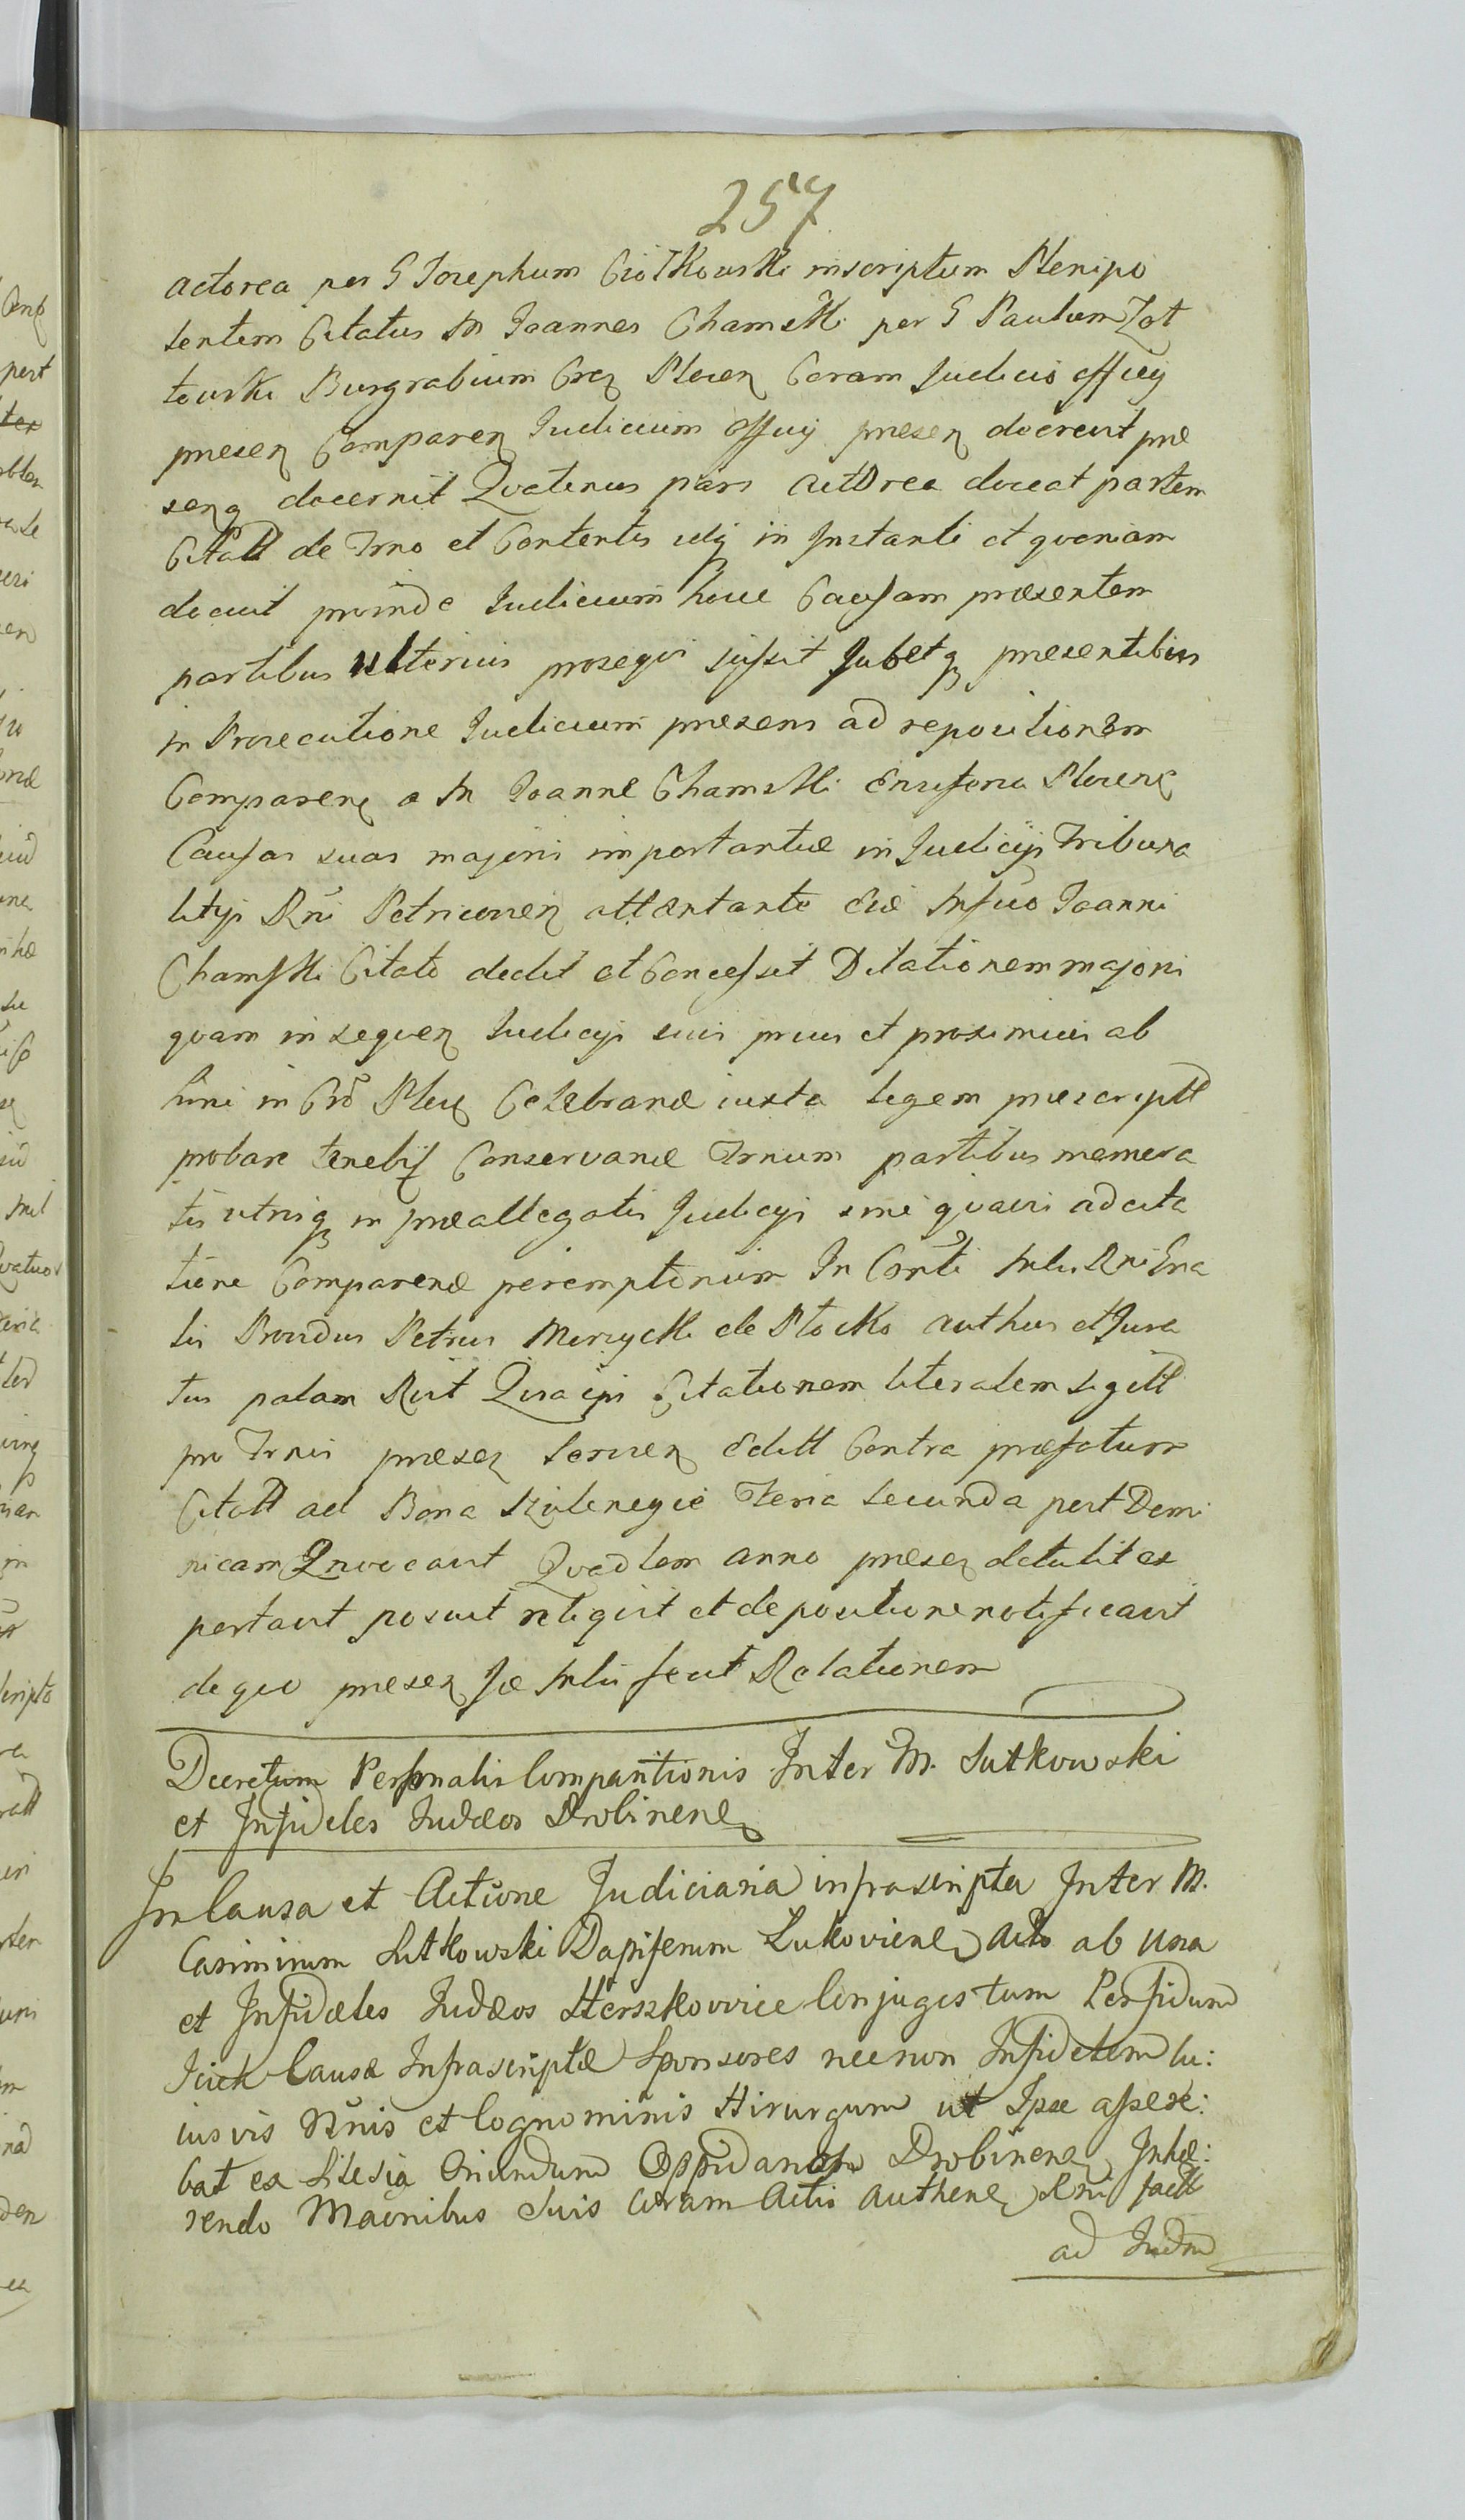 257
actorea per G Josephum Ciołkowski inscriptum Plenipo
tentem Citatus M Joannes Chamski per G Paulum Zot
towski Burgrabium Cren Plocen Coram Judicio officij
presen Comparen Judicium officij presen decrevit præ
senq decernit Quatenus pars actorea doceat partem
Citatt de Trno et Contentis in Instanti et quoniam
docuit proinde Judicium hocce Causam præsentem
partibus ulterius prosequi jussit Jubetq presentibus
in Prosecutione Judicium presens ad repositionem
Comparen a M Joanne Chamski Ensifero Plocen
Causas suas majoris importantiæ in Judicijs Tribuna
litijs Rni Petricovien attentante Eid Mfico Joanni
Chamski Citato dedit et Concessit Dilationem majoris
quam in sequen Judicijs suis prius et proximius ab
hinc in Plocen Celebrand iuxta legem præscriptt
probare tenebit Conservand Trnum partibus memora
tis utrisq in præallegatis Judicijs sine quavis adcita
tione Comparend peremptorium In Conti Mltis Rni Gna
lis Providus Petrus Meryck de Płocko authus et Jura
tus palam Rcit Quia ipse Citationem literalem sigill
pro Trnis presen servien Editt Contra præfatum
Citatt ad Bona feria secunda post Domi
nicam Invocavit Quadlem anno presen detulit ex
portavit posuit reliquit et de positione notificavit
de quo presen se Mltis fecit Relationem
Decretum Personalis Comparitionis Inter M. Sutkowski
et Infideles Judæos Drobinen
In Causa et Actione Judiciaria infrascripta Inter M.
Casimirum Sutkowski Dapiferum Lukovien Acto ab una
et Infidæles Judæos Herszkowice Conjuges tum Perfidum
Jcick Causæ Infrascriptæ Sponsores necnon Infidelem cu:
iusvis Nnis et Cognominis Hirurgum ut Ipse assere:
bat ex Silesia Oriundum Oppidanos Drobinen Inhæ:
rendo Maōnibus Suis Coram Actis Authen Rni factt
ad Judm